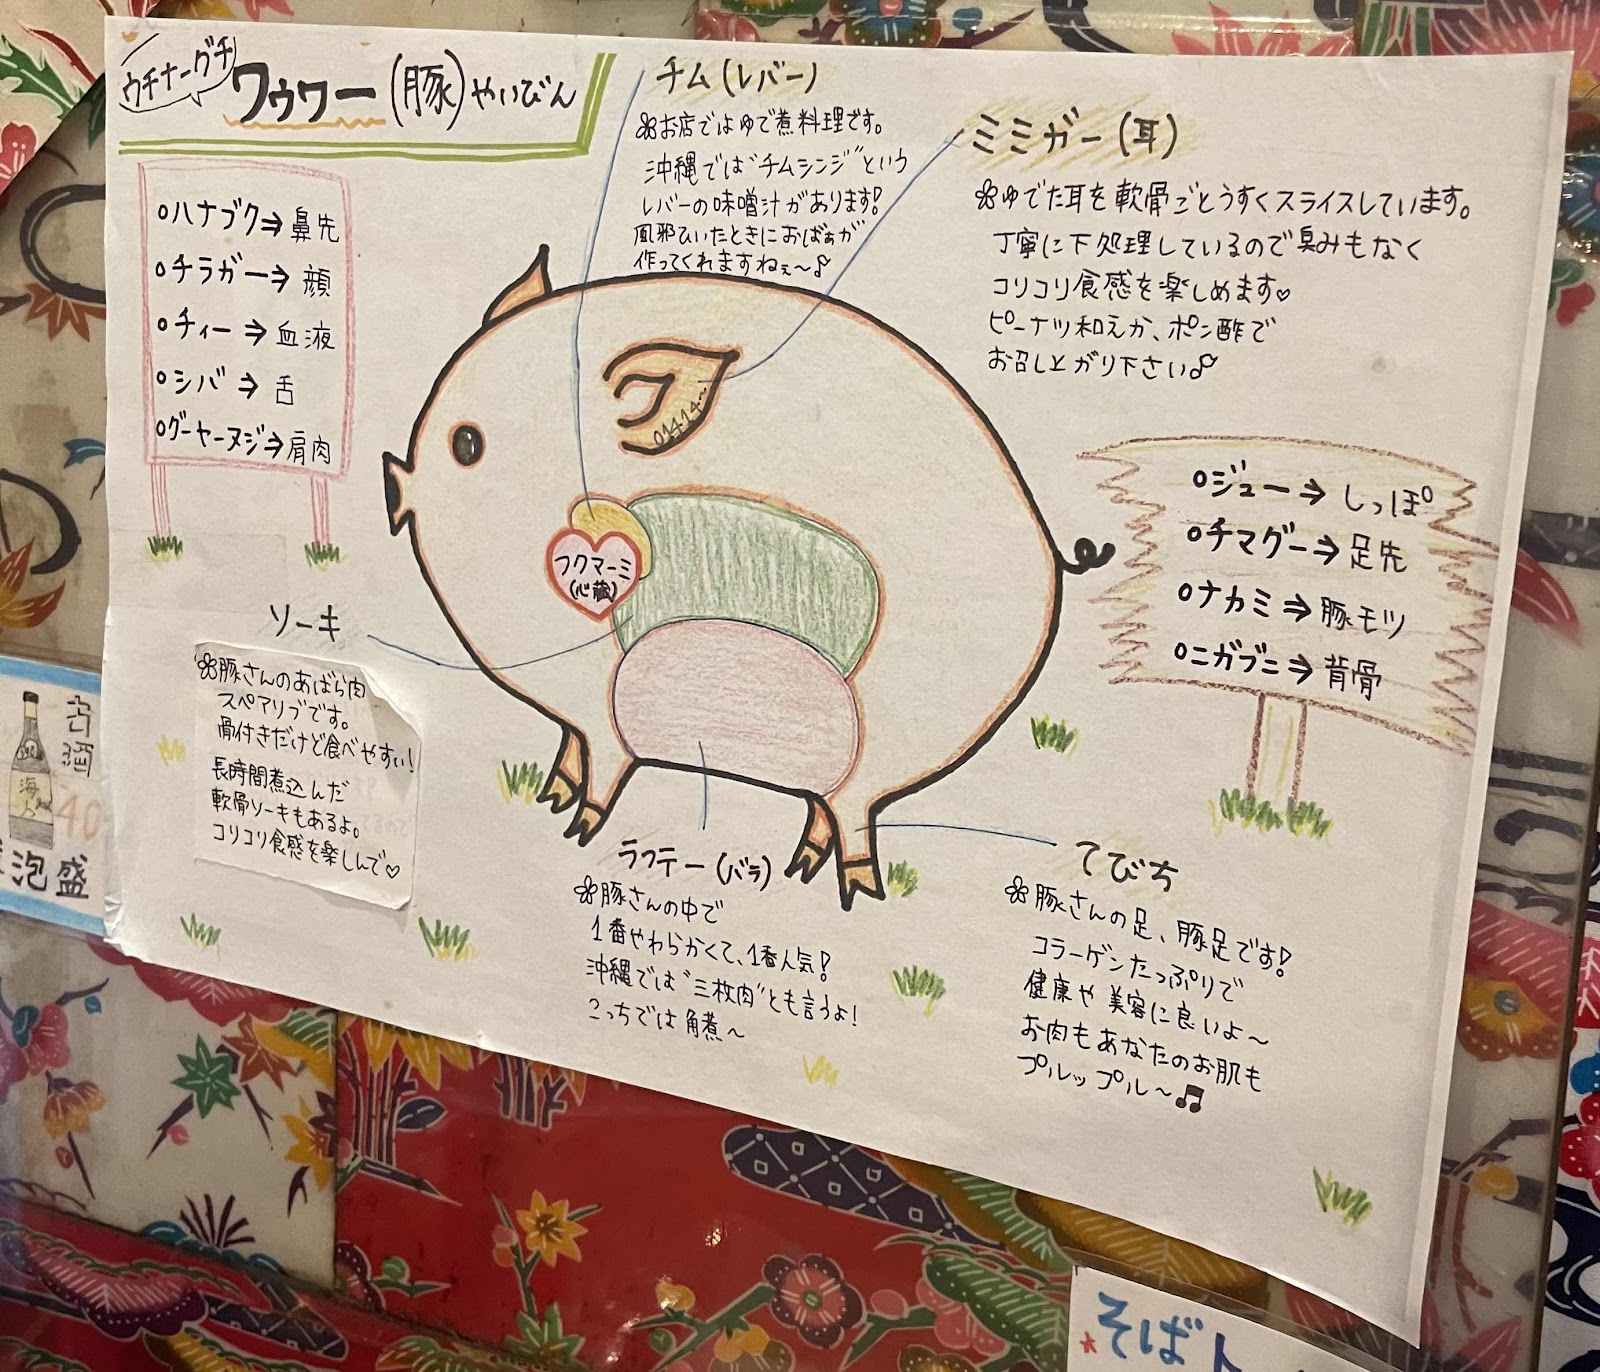 ウチナーグチ
ワゥワー(豚)やいびん
○ハナブク⇒鼻先
○チラガー⇒顔
○チィー⇒血液
○シバ⇒舌
○グーヤーヌジ⇒肩肉
チム(レバー)
お店ではゆで煮料理です。
沖縄では"チムシンジ"という
レバーの味噌汁があります!
風邪ひいたときにおばぁが
作ってくれますねぇ〜♪
ミミガー(耳)
ゆでた耳を軟骨ごとうすくスライスしています。
丁寧に下処理しているので臭みもなく
コリコリ食感を楽しめます♡
ピーナツ和えか、ポン酢で
お召し上がり下さい♪
フクマーミ
(心臓)
○ジュー⇒しっぽ
○チマグー⇒足先
○ナカミ⇒豚モツ
○ニガブニ⇒背骨
ソーキ
豚さんのあばら肉
スペアリブです。
骨付きだけど食べやすい!
長時間煮込んだ
軟骨ソーキもあるよ。
コリコリ食感を楽しんで♡
ラフテー(バラ)
豚さんの中で
1番やわらかくて、1番人気!
沖縄では"三枚肉"とも言うよ!
こっちでは角煮〜
てびち
豚さんの足、豚足です!
コラーゲンたっぷりで
健康や美容に良いよ〜
お肉もあなたのお肌も
プルップル〜♫
古酒
海人
40
泡盛
そば